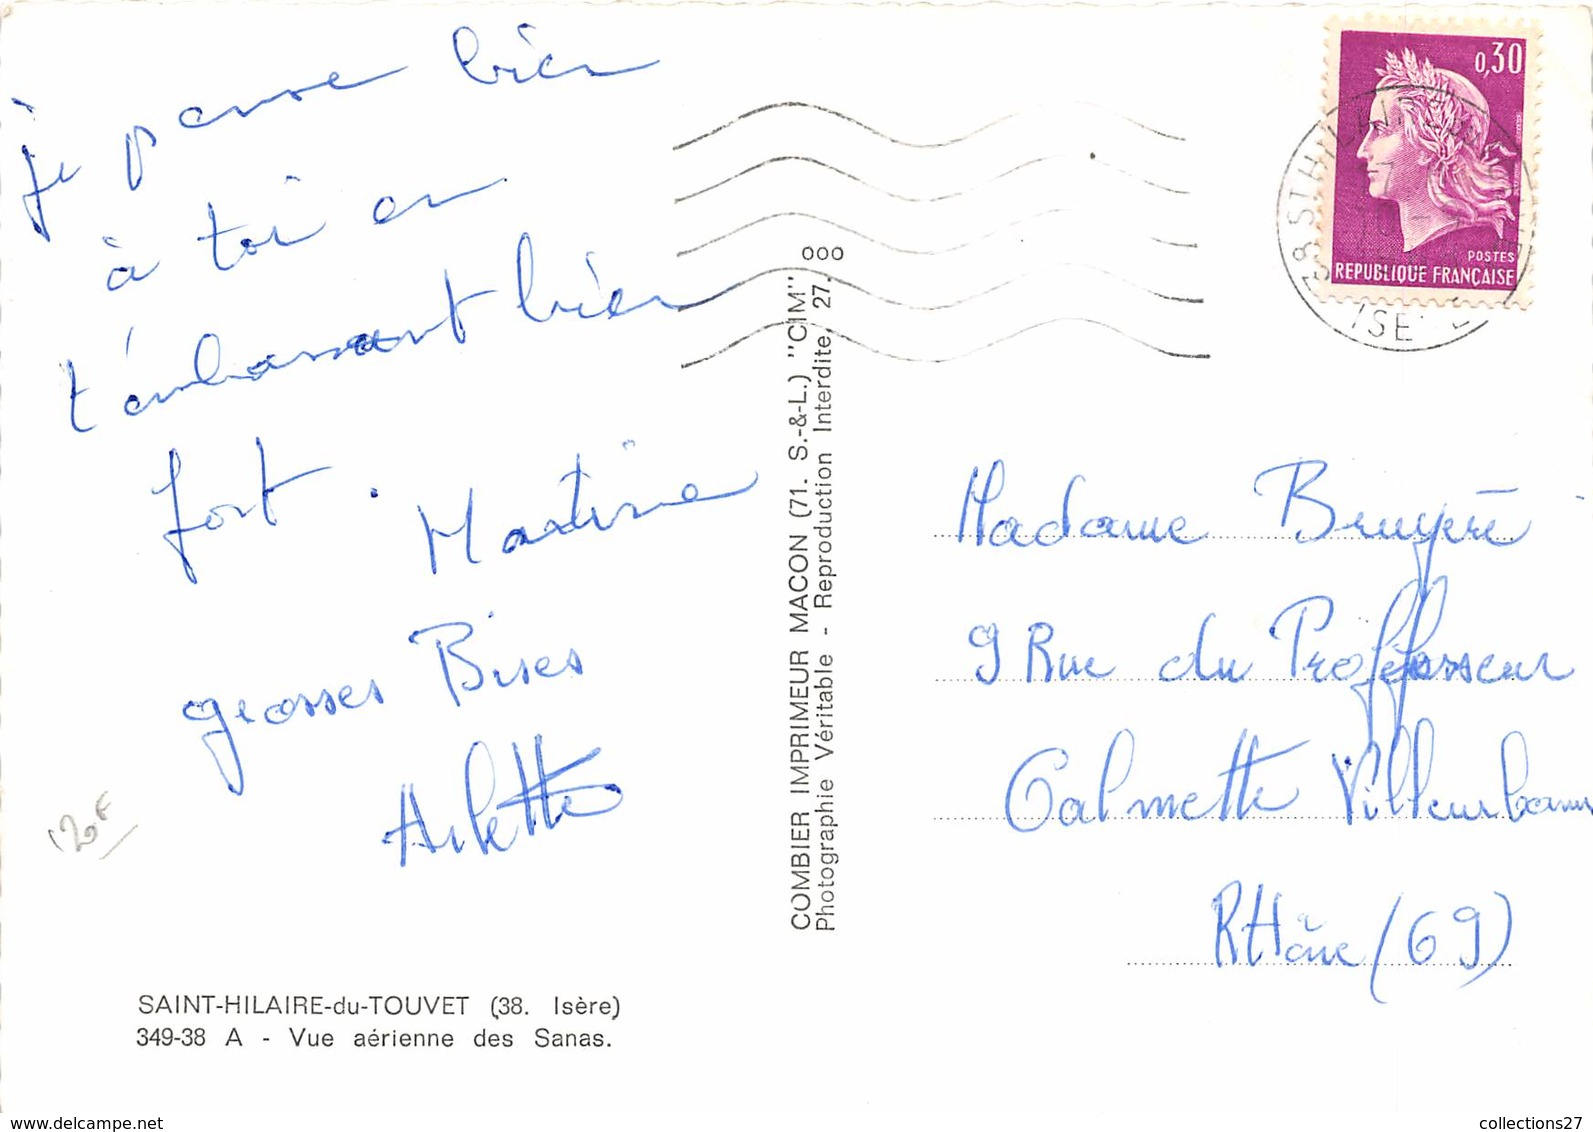 je pense bien
à toi en
t'embrassant bien
fort. Martine
grosses Bises
Arlette
120F
SAINT-HILAIRE-du-TOUVET (38. Isère)
349-38 A - Vue aérienne des Sanas.
COMBIER IMPRIMEUR MACON (71. S.-&-L.) "CIM"
Photographie Véritable - Reproduction Interdite. 27.
000
0,30
POSTES
REPUBLIQUE FRANÇAISE
38 ST HILAIRE
ISERE
Madame Bruyère
9 Rue du Professeur
Calmette Villeurbanne
RHône (69)
collections27